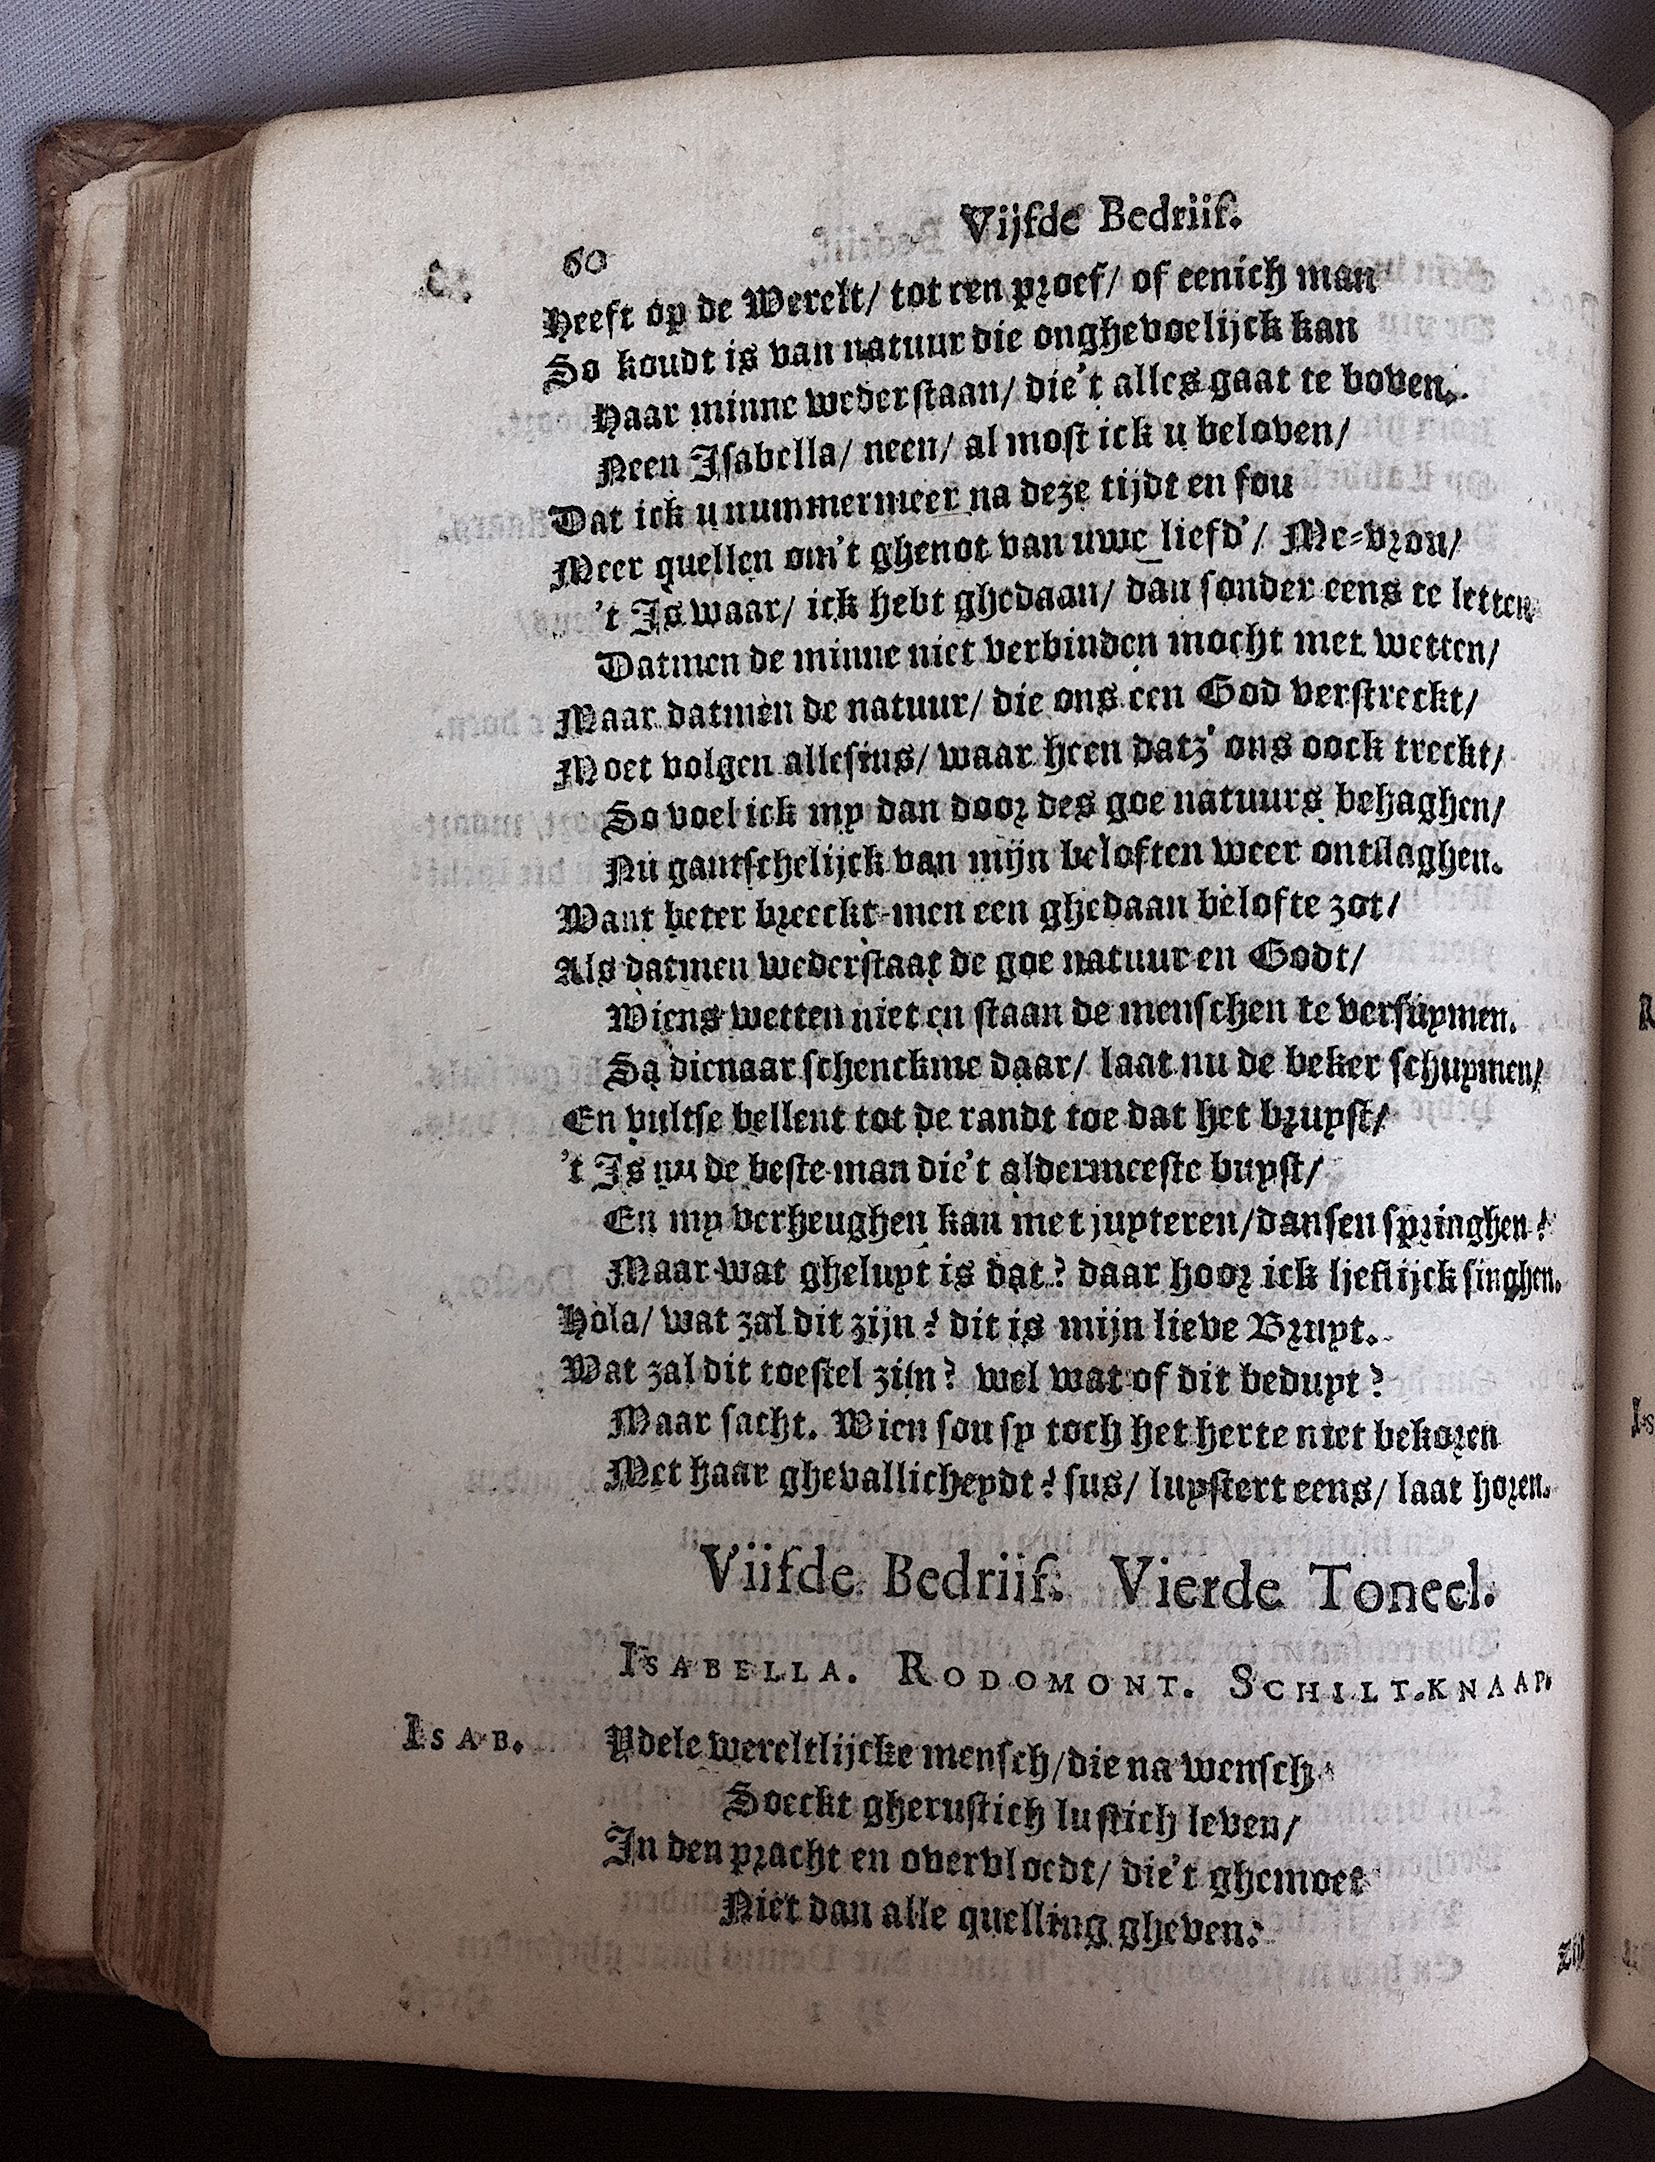 60
Vijfde Bedriif.
Heeft op de Werelt/ tot een proef/ of eenich man
So koudt is van natuur die onghevoelijck kan
Haar minne wederstaan/ die't alles gaat te boven.
Neen Isabella/ neen/ al most ick u beloven/
Dat ick u nummermeer na deze tijdt en sou
Meer quellen om't ghenot van uwe liefd'/ Me-vrou/
't Is waar/ ick hebt ghedaan/ dan sonder eens te letten
Datmen de minne niet verbinden mocht met wetten/
Maar datmen de natuur/ die ons een God verstreckt/
Moet volgen allesins/ waar heen datz' ons oock treckt/
So voel ick my dan door des goe natuurs behaghen/
Nu gantschelijck van mijn beloften weer ontslaghen.
Want beter breeckt-men een ghedaan belofte zot/
Als datmen wederstaat de goe natuur en Godt/
Wiens wetten niet en staan de menschen te versuymen.
Sa dienaar schenckme daar/ laat nu de beker schuymen/
En vultse vellent tot de randt toe dat het bruyst/
't Is nu de beste man die't aldermeeste buyst/
En my verheughen kan met juyteren/dansen springhen!
Maar wat gheluyt is dat? daar hoor ick lieflijck singhen.
Hola/ wat zal dit zijn? dit is mijn lieve Bruyt.
Wat zal dit toestel zijn? wel wat of dit beduyt?
Maar sacht. Wien sou sy toch het herte niet bekoren
Met haar ghevallicheydt? sus/ luystert eens/ laat horen.
Viifde Bedriif. Vierde Toneel.
ISABELLA. RODOMONT. SCHILT-KNAAP.
ISAB. Ydele wereltlijcke mensch/die na wensch
Soeckt gherustich lustich leven/
In den pracht en overvloedt/ die't ghemoet
Niet dan alle quelling gheven: